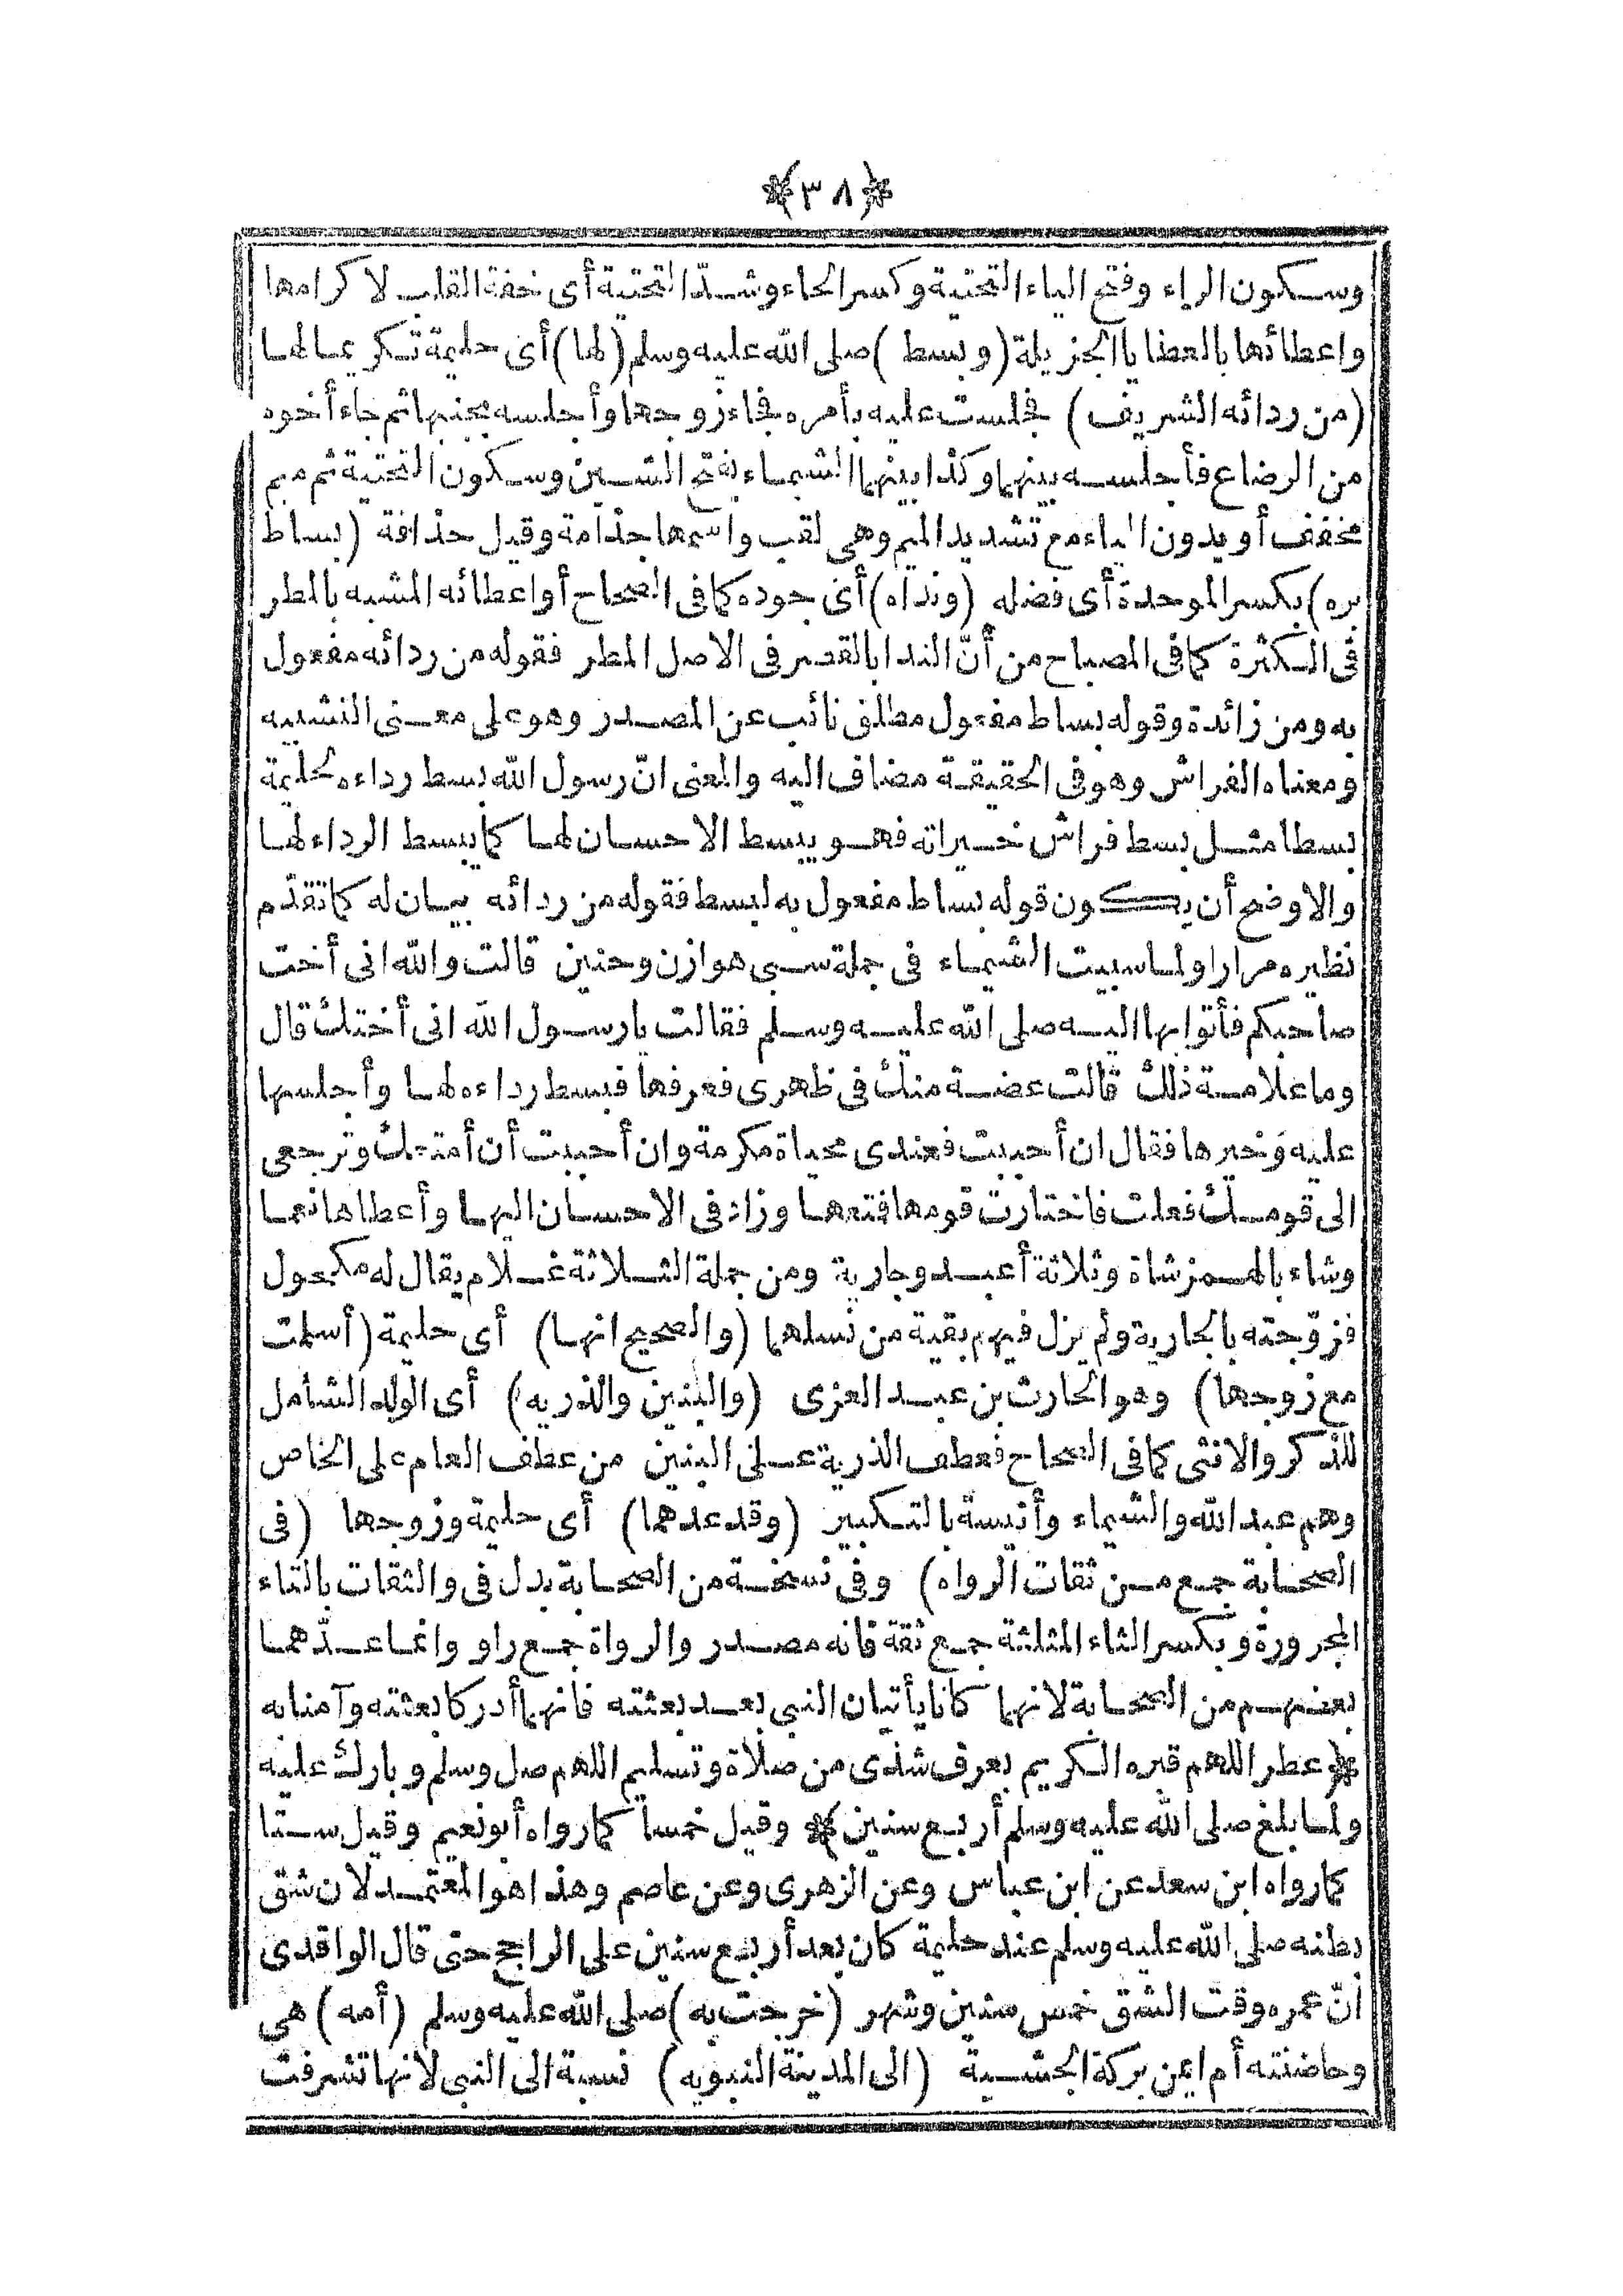 ﴿٣٨﴾
وسكون الراء وفتح الياء التحتية وكسر الحاء وشدّ التحتية أى خفة القلب لا كرامها
واعطائها بالعطايا الجزيلة (وبسط) صلى الله عليه وسلم (لها) أى حليمة تكريما لها
(من ردائه الشريف) فجلست عليه بأمره فجاء زوجها وأجلسه بجنبها ثم جاء أخوه
من الرضاع فأجلسه بينهما وكذا بينهما الشيماء بفتح الشين وسكون التحتية ثم ميم
مخففف أو بدون الياء مع تشديد الميم وهى لقب واسمها جذامة وقيل حذافة (بساط
بره) بكسر الموحدة أى فضله (ونداه) أى جوده كما فى الصحاح أو اعطائه المشبه بالمطر
فى الكثرة كما فى المصباح من أنّ الندا بالقصر فى الاصل المطر فقوله من ردائه مفعول
به ومن زائدة وقوله بساط مفعول مطلق نائب عن المصدر وهو على معنى التشبيه
ومعناه الفراش وهو فى الحقيقة مضاف اليه والمعنى انّ رسول الله بسط رداءه لحليمة
بسطا مثل بسط فراش خيراته فهو يبسط الاحسان لها كما يبسط الرداء لها
والاوضح أن يكون قوله بساط مفعول به لبسط فقوله من ردائه بيان له كما تقدّم
نظيره مرارا ولما سبيت الشيماء فى جملة سبى هوازن وحنين قالت والله انى أخت
صاحبكم فأتوا بها اليه صلى الله عليه وسلم فقالت يا رسول الله انى أختك قال
وما علامة ذلك قالت عضة منك فى ظهرى فعرفها فبسط رداءه لها وأجلسها
عليه وخيرها فقال ان أحببت فعندى محياة مكرمة وان أحببت أن أمتعك وترجعى
الى قومك فعلت فاختارت قومها فتعها وزاد فى الاحسان اليها وأعطاها نعما
وشاء بالهمز شاة وثلاثة أعبد وجارية ومن جملة الثلاثة غلام يقال له مكحول
فزوّجته بالجارية ولم يزل فيهم بقية من نسلهما (والصحيح انها) أى حليمة (أسلمت
مع زوجها) وهو الحارث بن عبد العزى (والبنين والذريه) أى الولد الشامل
للذكر والانثى كما فى الصحاح فعطف الذرية على البنين من عطف العام على الخاص
وهم عبد الله والشيماء وأنيسة بالتكبير (وقد عدهما) أى حليمة وزوجها (فى
الصحابة جمع من ثقات الرواه) وفى نسخة من الصحابة بدل فى والثقات بالتاء
المجرورة وبكسر الثاء المثلثة جمع ثقة فانه مصدر والرواة جمع راو وانما عدّهما
بعضهم من الصحابة لانهما كانا يأتيان النبى بعد بعثته فانهما أدركا بعثته وآمنا به
﴿عطر اللهم قبره الكريم بعرف شذى من صلاة وتسليم اللهم صل وسلم وبارك عليه
ولما بلغ صلى الله عليه وسلم أربع سنين﴾ وقيل خمسا كما رواه أبو نعيم وقيل ستا
كما رواه ابن سعد عن ابن عباس وعن الزهرى وعن عاصم وهذا هو المعتمد لان شق
بطنه صلى الله عليه وسلم عند حليمة كان بعد أربع سنين على الراجح حتى قال الواقدى
انّ عمره وقت الشق خمس سنين وشهر (خرجت به) صلى الله عليه وسلم (أمه) هى
وحاضنته أم ايمن بركة الحبشية (الى المدينة النبويه) نسبة الى النبى لانها تشرفت